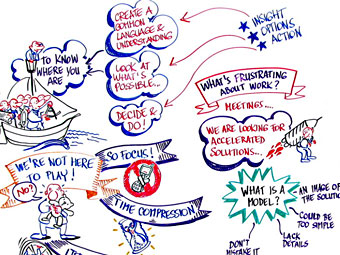 CREATE A
COMMON
LANGUAGE &
UNDERSTANDING
INSIGHT
OPTIONS
ACTION
TO KNOW
WHERE YOU
ARE
LOOK AT
WHAT'S
POSSIBLE...
DECIDE &
DO!
WHAT'S FRUSTRATING
ABOUT WORK?
MEETINGS....
WE ARE LOOKING FOR
ACCELERATED
SOLUTIONS...
WE'RE NOT HERE
TO PLAY!
NO?
SO FOCUS!
TIME COMPRESSION
WHAT IS A
MODEL?
AN IMAGE OF
THE SOLUTIO
COULD BE
TOO SIMPLE
LACK
DETAILS
DON'T
MISTAKE IT